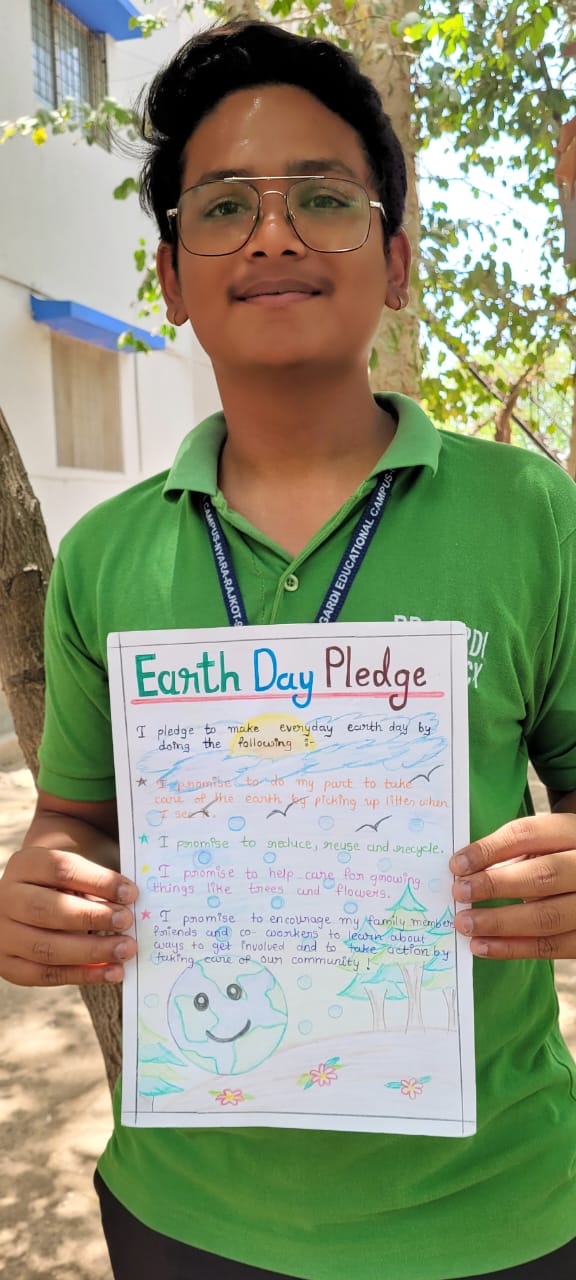 CAMPUS-NYARA-RAJKOT-
GARDI EDUCATIONAL CAMPUS-
Earth Day Pledge
I pledge to make everyday earth day by
doing the following :-
★ I promise to do my part to take
care of the earth by picking up litter when
I see it.
★ I promise to reduce, reuse and recycle.
★ I promise to help care for growing
things like trees and flowers.
★ I promise to encourage my family members
friends and co-workers to learn about
ways to get involved and to take action by
taking care of our community!